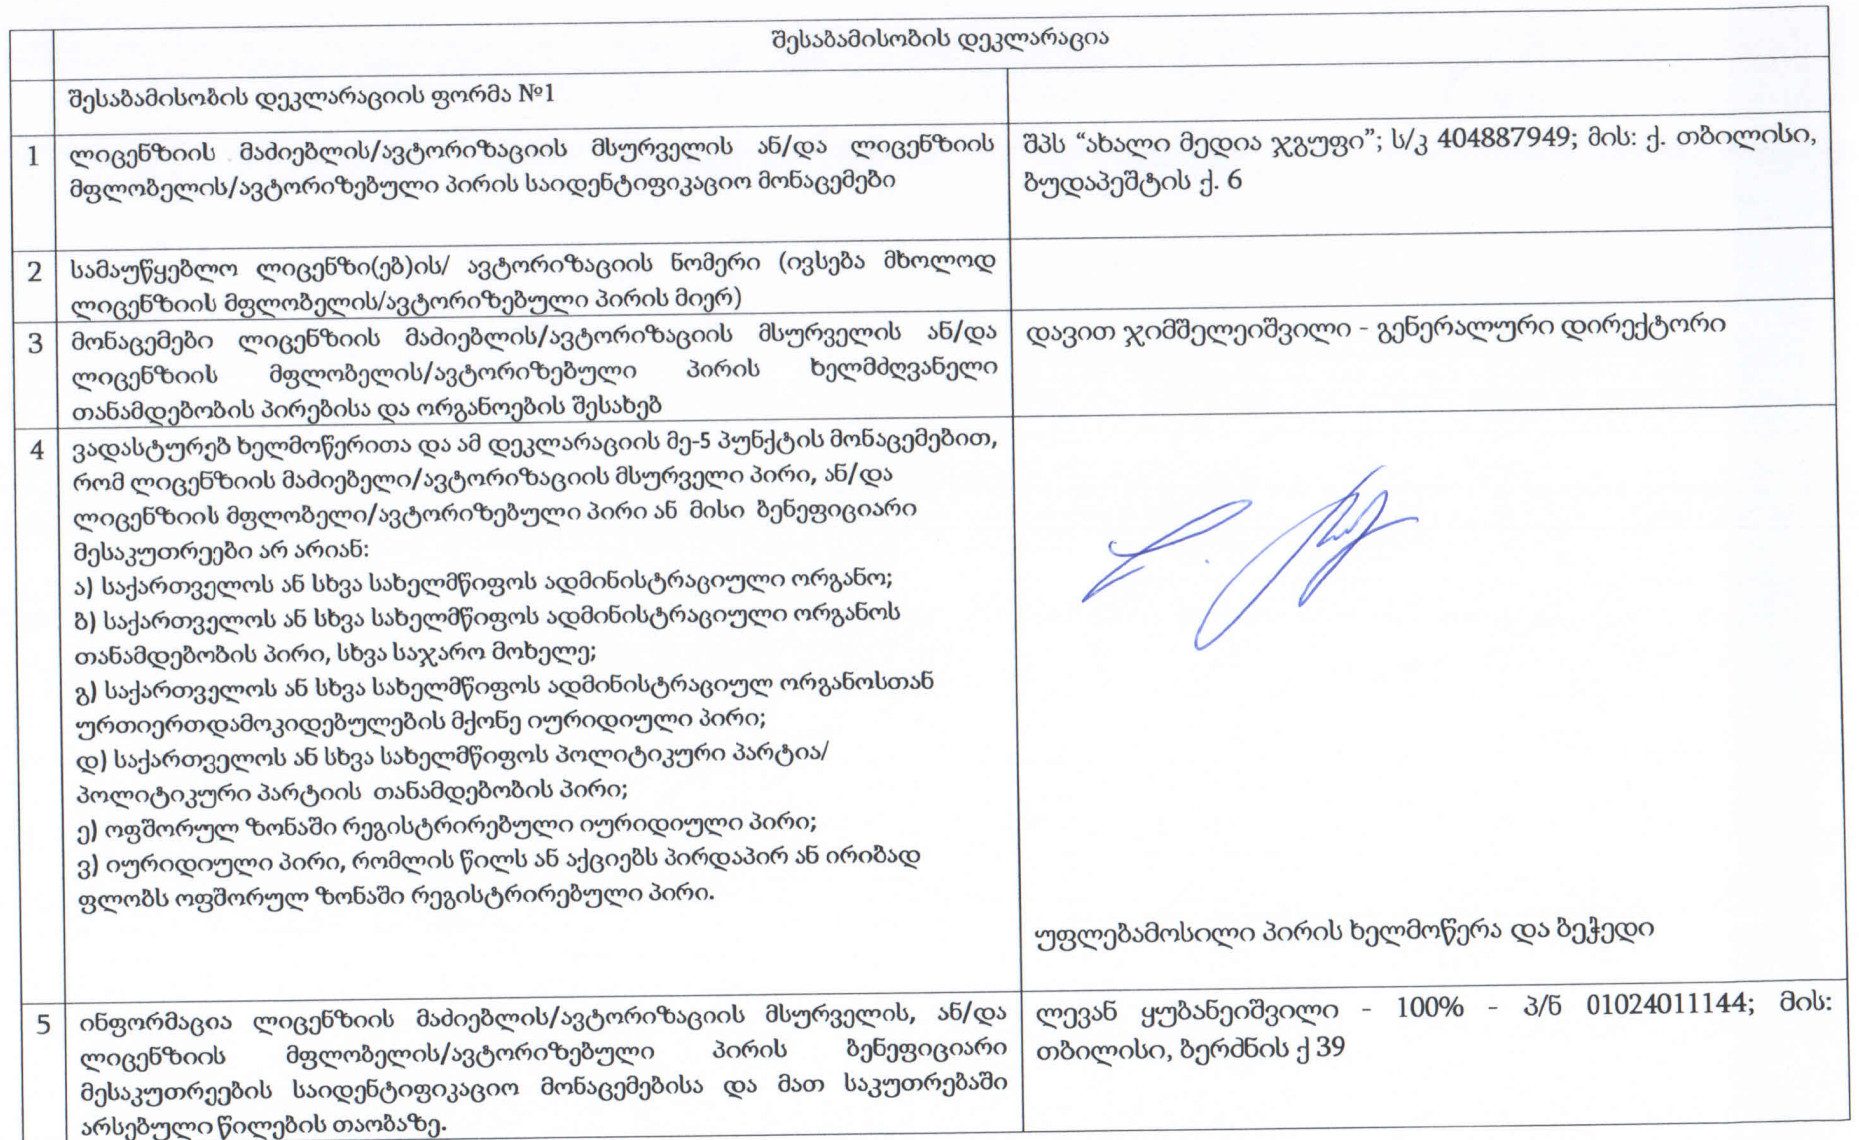 შესაბამისობის დეკლარაცია
შესაბამისობის დეკლარაციის ფორმა №1
1 ლიცენზიის მაძიებლის/ავტორიზაციის მსურველის ან/და ლიცენზიის
მფლობელის/ავტორიზებული პირის საიდენტიფიკაციო მონაცემები
შპს “ახალი მედია ჯგუფი”; ს/კ 404887949; მის: ქ. თბილისი,
ბუდაპეშტის ქ. 6
2 სამაუწყებლო ლიცენზი(ებ)ის/ ავტორიზაციის ნომერი (ივსება მხოლოდ
ლიცენზიის მფლობელის/ავტორიზებული პირის მიერ)
3 მონაცემები ლიცენზიის მაძიებლის/ავტორიზაციის მსურველის ან/და
ლიცენზიის მფლობელის/ავტორიზებული პირის ხელმძღვანელი
თანამდებობის პირებისა და ორგანოების შესახებ
დავით ჯიმშელეიშვილი - გენერალური დირექტორი
4 ვადასტურებ ხელმოწერითა და ამ დეკლარაციის მე-5 პუნქტის მონაცემებით,
რომ ლიცენზიის მაძიებელი/ავტორიზაციის მსურველი პირი, ან/და
ლიცენზიის მფლობელი/ავტორიზებული პირი ან მისი ბენეფიციარი
მესაკუთრეები არ არიან:
ა) საქართველოს ან სხვა სახელმწიფოს ადმინისტრაციული ორგანო;
ბ) საქართველოს ან სხვა სახელმწიფოს ადმინისტრაციული ორგანოს
თანამდებობის პირი, სხვა საჯარო მოხელე;
გ) საქართველოს ან სხვა სახელმწიფოს ადმინისტრაციულ ორგანოსთან
ურთიერთდამოკიდებულების მქონე იურიდიული პირი;
დ) საქართველოს ან სხვა სახელმწიფოს პოლიტიკური პარტია/
პოლიტიკური პარტიის თანამდებობის პირი;
ე) ოფშორულ ზონაში რეგისტრირებული იურიდიული პირი;
ვ) იურიდიული პირი, რომლის წილს ან აქციებს პირდაპირ ან ირიბად
ფლობს ოფშორულ ზონაში რეგისტრირებული პირი.
უფლებამოსილი პირის ხელმოწერა და ბეჭედი
5 ინფორმაცია ლიცენზიის მაძიებლის/ავტორიზაციის მსურველის, ან/და
ლიცენზიის მფლობელის/ავტორიზებული პირის ბენეფიციარი
მესაკუთრეების საიდენტიფიკაციო მონაცემებისა და მათ საკუთრებაში
არსებული წილების თაობაზე.
ლევან ყუბანეიშვილი - 100% - პ/ნ 01024011144; მის:
თბილისი, ბერძნის ქ 39